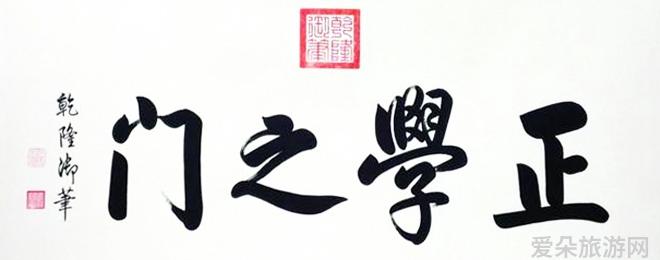 正學之门
乾隆御筆
乾隆御筆
爱朵旅游网